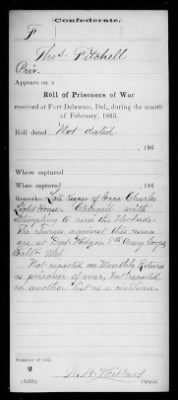 Confederate.
F
Thos. Fitchell
Priv.
Appears on a
Roll of Prisoners of War
received at Fort Delaware, Del., during the month
of February, 1863.
Roll dated Not dated
, 186
Where captured
When captured , 186
Remarks: Late Keeper of Cape Charles
Light House. Charged with
attempting to run the blockade
The charges against this man
are at Genl
Balto Md
Not reported on Monthly Returns
as prisoner of war, but reported
on another list as a civilian.
Number of roll:
2
Copyist.